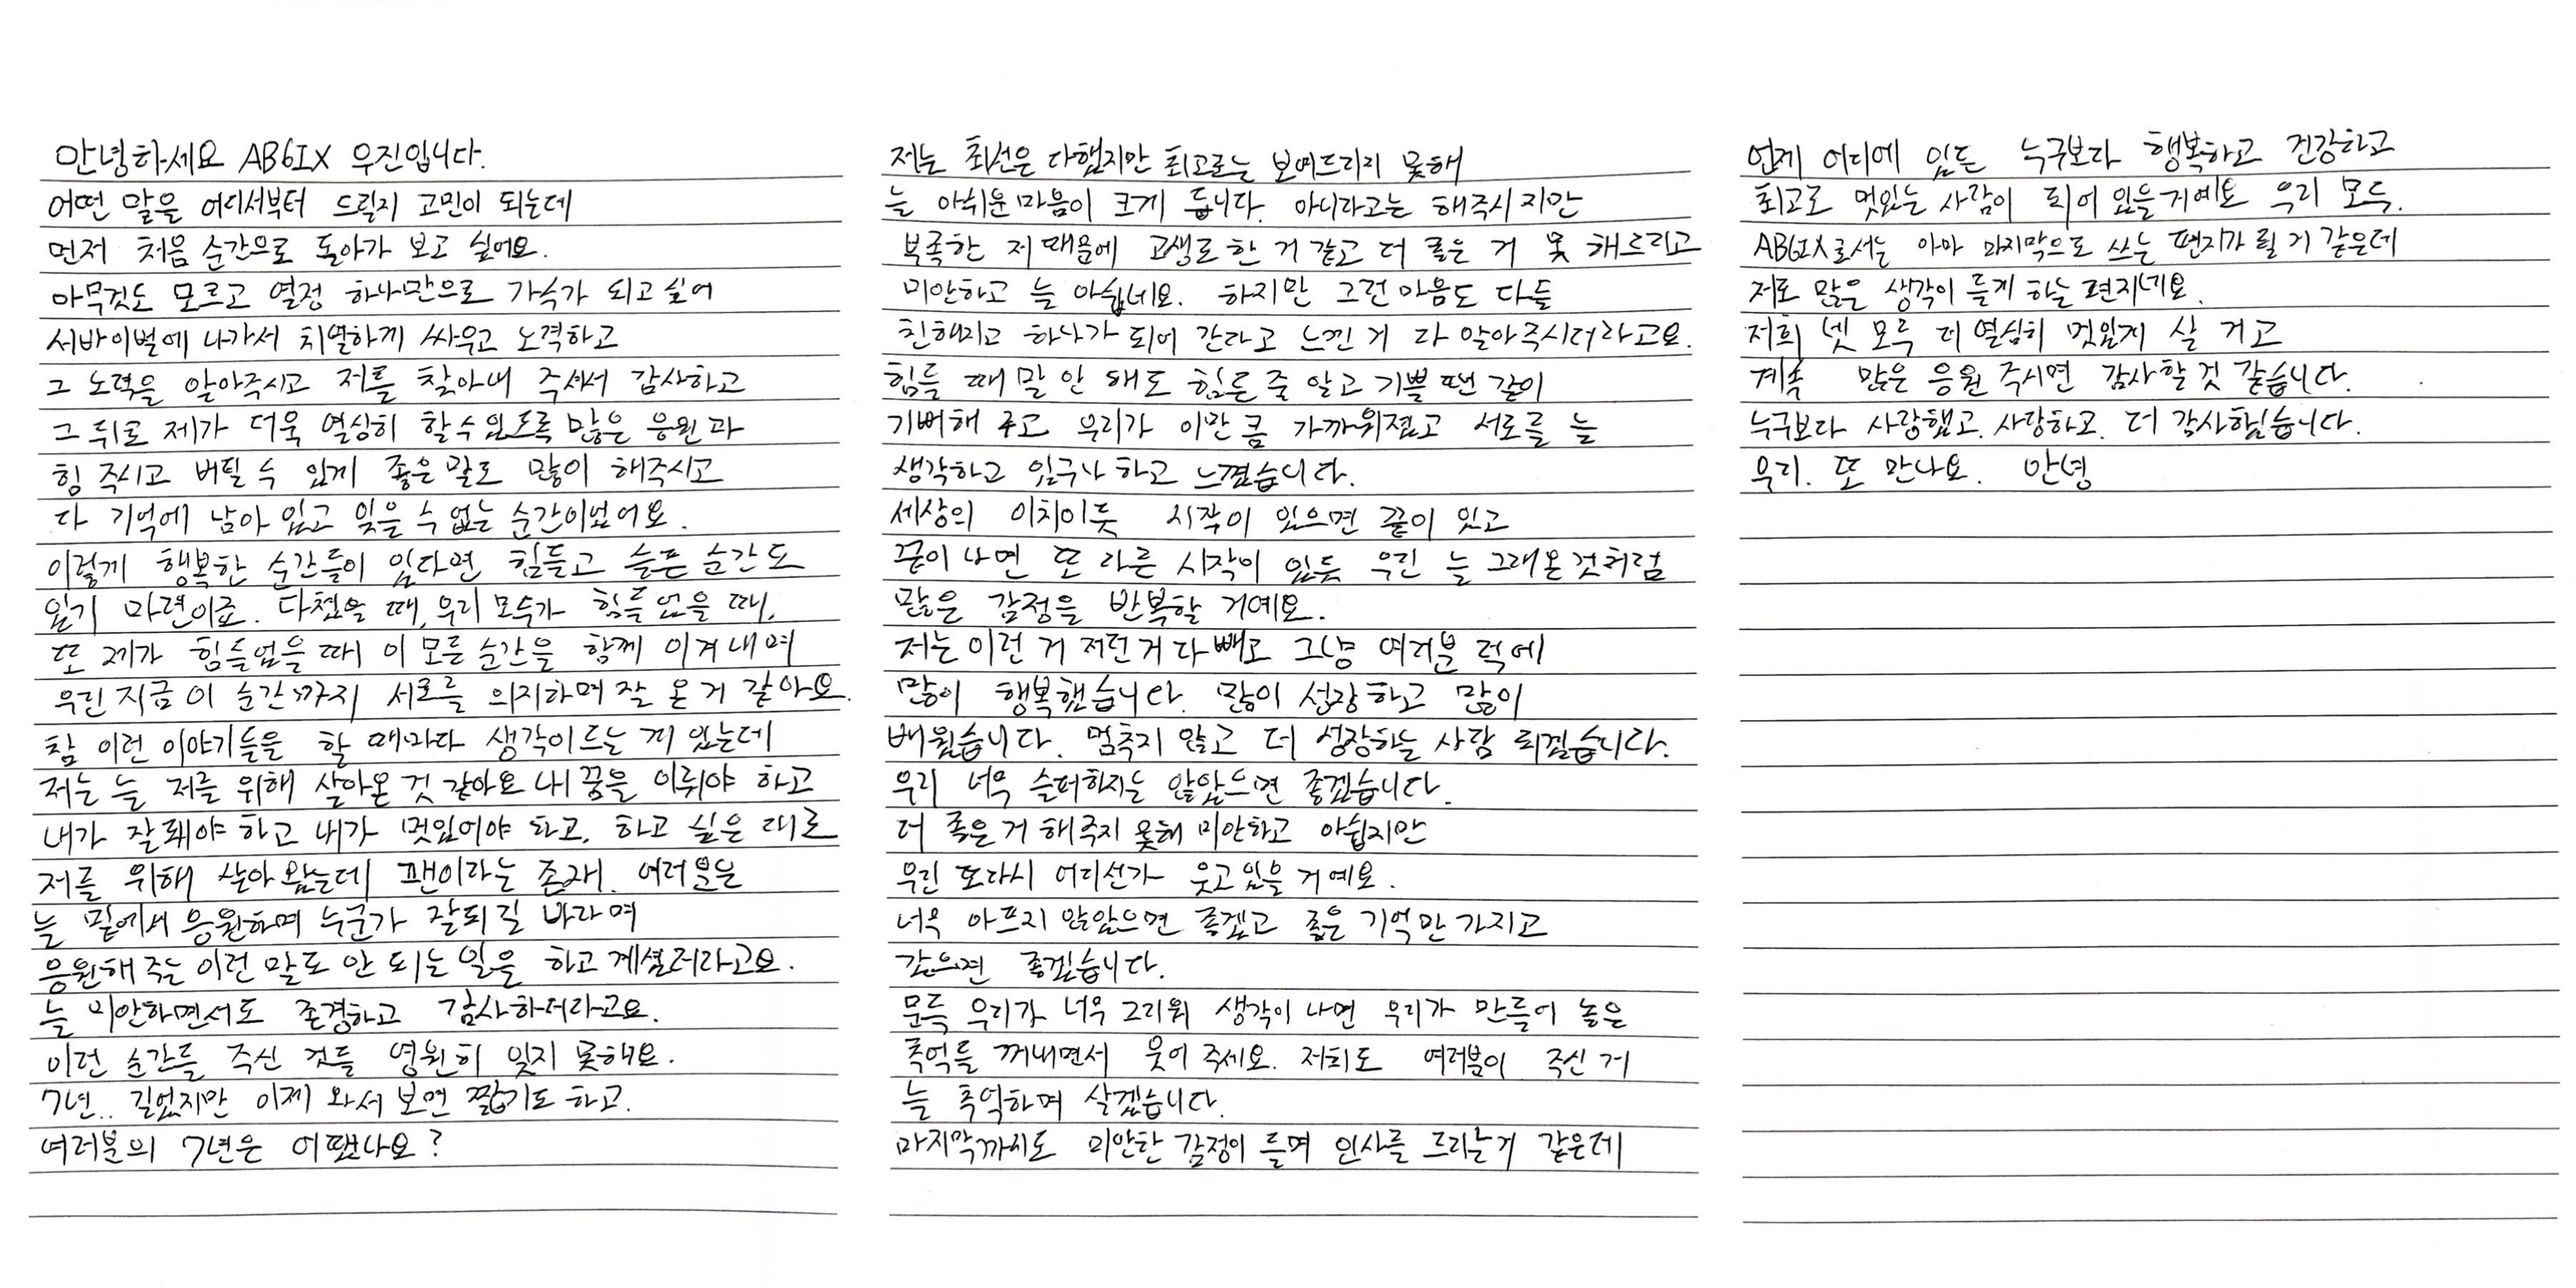 안녕하세요 AB6IX 우진입니다.
어떤 말을 어디서부터 드릴지 고민이 되는데
먼저 처음 순간으로 돌아가 보고 싶어요.
아무것도 모르고 열정 하나만으로 가수가 되고 싶어
서바이벌에 나가서 치열하게 싸우고 노력하고
그 노력을 알아주시고 저를 찾아내 주셔서 감사하고
그 뒤로 제가 더욱 열심히 할 수 있도록 많은 응원과
힘 주시고 버틸 수 있게 좋은 말로 많이 해주시고
다 기억에 남아 있고 잊을 수 없는 순간이었어요.
이렇게 행복한 순간들이 있다면 힘들고 슬픈 순간도
있기 마련이죠. 다쳤을 때, 우리 모두가 힘들었을 때,
또 제가 힘들었을 때 이 모든 순간을 함께 이겨내며
우린 지금 이 순간까지 서로를 의지하며 잘 온 거 같아요.
참 이런 이야기들을 할 때마다 생각이 드는 게 있는데
저는 늘 저를 위해 살아온 것 같아요 내 꿈을 이뤄야 하고
내가 잘돼야 하고 내가 멋있어야 하고. 하고 싶은 대로
저를 위해 살아 왔는데 팬이라는 존재. 여러분은
늘 밑에서 응원하며 누군가 잘되길 바라며
응원해 주는 이런 말도 안 되는 일을 하고 계셨더라고요.
늘 미안하면서도 존경하고 감사하더라고요.
이런 순간들 주신 것들 영원히 잊지 못해요.
7년.. 길었지만 이제 와서 보면 짧기도 하고.
여러분의 7년은 어땠나요?
저는 최선은 다했지만 최고로는 보여드리지 못해
늘 아쉬운 마음이 크게 듭니다. 아니라고는 해주시지만
부족한 저 때문에 고생도 한 거 같고 더 좋은 거 못 해드리고
미안하고 늘 아쉽네요. 하지만 그런 마음도 다들
친해지고 하나가 되어 간다고 느낀 거 다 알아주시더라고요.
힘들 때 말 안 해도 힘든 줄 알고 기쁠 땐 같이
기뻐해 주고 우리가 이만큼 가까워졌고 서로를 늘
생각하고 있구나 하고 느꼈습니다.
세상의 이치이듯 시작이 있으면 끝이 있고
끝이 나면 또 다른 시작이 있듯 우린 늘 그래온 것처럼
많은 감정을 반복할 거예요.
저는 이런 거 저런 거 다 빼고 그냥 여러분 덕에
많이 행복했습니다. 많이 성장하고 많이
배웠습니다. 멈추지 않고 더 성장하는 사람 되겠습니다.
우리 너무 슬퍼하지는 않았으면 좋겠습니다.
더 좋은 거 해주지 못해 미안하고 아쉽지만
우린 또다시 어디선가 웃고 있을 거예요.
너무 아프지 않았으면 좋겠고 좋은 기억만 가지고
갔으면 좋겠습니다.
문득 우리가 너무 그리워 생각이 나면 우리가 만들어 놓은
추억들 꺼내면서 웃어 주세요. 저희도 여러분이 주신 거
늘 추억하며 살겠습니다.
마지막까지도 미안한 감정이 들며 인사를 드리는 거 같은데
언제 어디에 있든 누구보다 행복하고 건강하고
최고로 멋있는 사람이 되어 있을 거예요 우리 모두.
AB6IX로서는 아마 마지막으로 쓰는 편지가 될 거 같은데
저도 많은 생각이 들게 하는 편지네요.
저희 넷 모두 더 열심히 멋있게 살 거고
계속 많은 응원 주시면 감사할 것 같습니다.
누구보다 사랑했고. 사랑하고. 더 감사했습니다.
우리. 또 만나요. 안녕